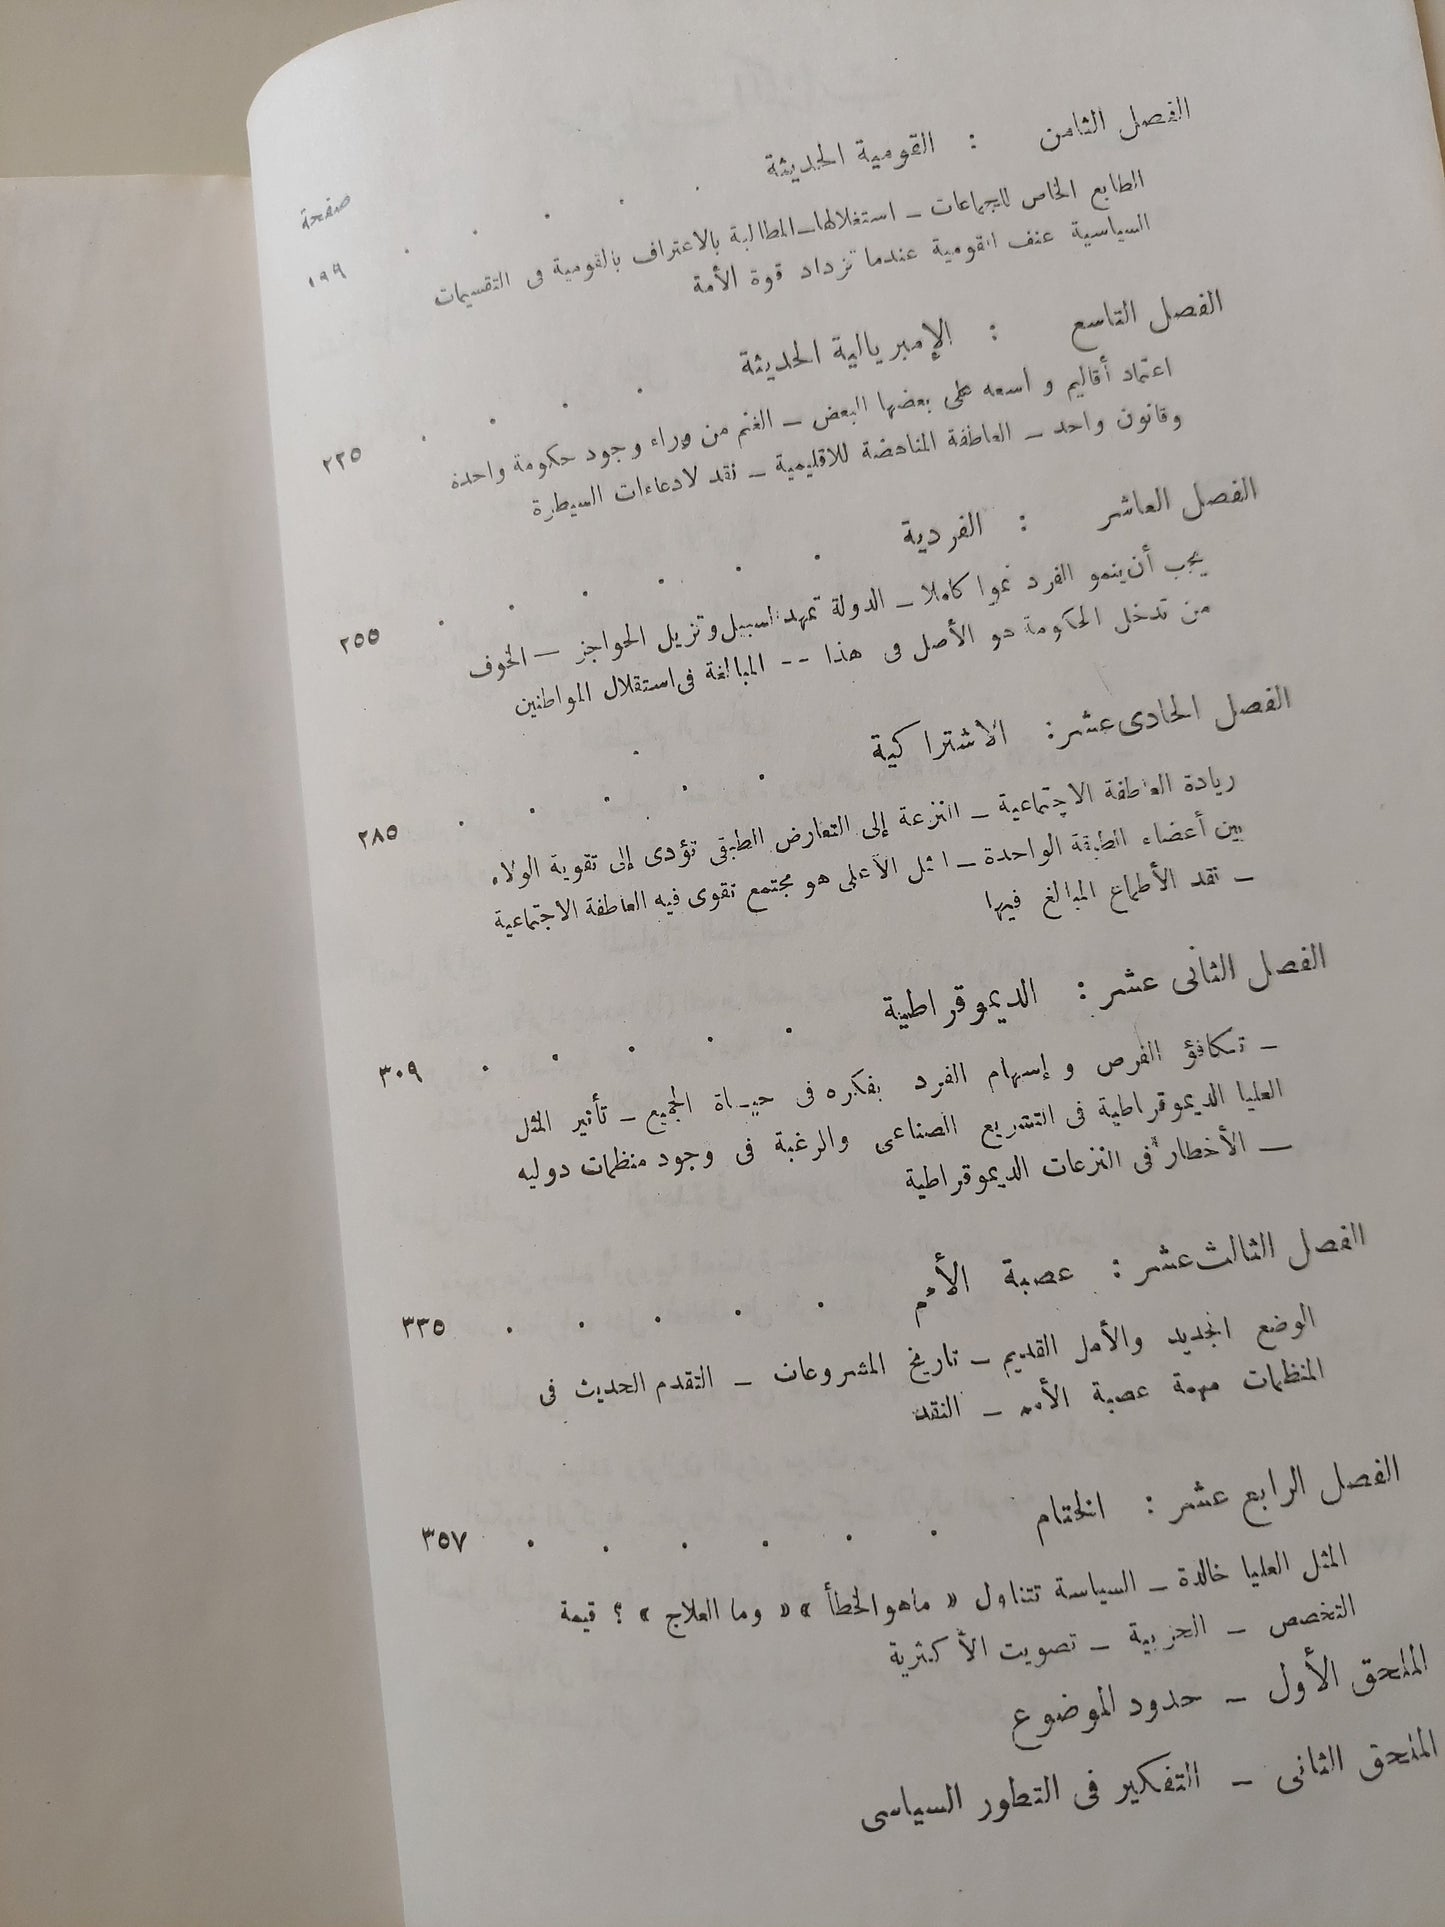 صفحة
الفصل الثامن : القومية الحديثة . . . . . ١٩٩
الطابع الخاص للجماعات — استغلالها — المطالبة بالاعتراف بالقومية فى التقسيمات
السياسية عنف القومية عندما تزداد قوة الأمة
الفصل التاسع : الإمبريالية الحديثة . . . . ٢٢٥
اعتماد أقاليم واسعه على بعضها البعض — الغنم من وراء وجود حكومة واحدة
وقانون واحد — العاطفة المناهضة للاقليمية — نقد لادعاءات السيطرة
الفصل العاشر : الفردية . . . . . . ٢٥٥
يجب أن ينمو الفرد نموا كاملا — الدولة تمهد السبيل وتزيل الحواجز — الخوف
من تدخل الحكومة هو الأصل فى هذا -- المبالغة فى استقلال المواطنين
الفصل الحادى عشر : الاشتراكية . . . . . . ٢٨٥
ريادة العاطفة الاجتماعية — النزعة إلى التعارض الطبقى تؤدى إلى تقوية الولاء
بين أعضاء الطبقة الواحدة — المثل الأعلى هو مجتمع تقوى فيه العاطفة الاجتماعية
— نقد الأطماع المبالغ فيها
الفصل الثانى عشر : الديموقراطية . . . . . ٣٠٩
— تكافؤ الفرص وإسهام الفرد بفكره فى حياة الجميع — تأثير المثل
العليا الديموقراطية فى التشريع الصناعى والرغبة فى وجود منظمات دوليه
— الأخطار فى النزعات الديموقراطية
الفصل الثالث عشر : عصبة الأمم . . . . . ٣٣٥
الوضع الجديد والأمل القديم — تاريخ المشروعات — التقدم الحديث فى
المنظمات مهمة عصبة الأمم — النقد
الفصل الرابع عشر : الختام . . . . . . ٣٥٧
المثل العليا خالدة — السياسة تتناول « ماهو الخطأ » « وما العلاج » ؟ قيمة
التخصص — الحزبية — تصويت الأكثرية
الملحق الأول — حدود الموضوع
الملحق الثانى — التفكير فى التطور السياسى